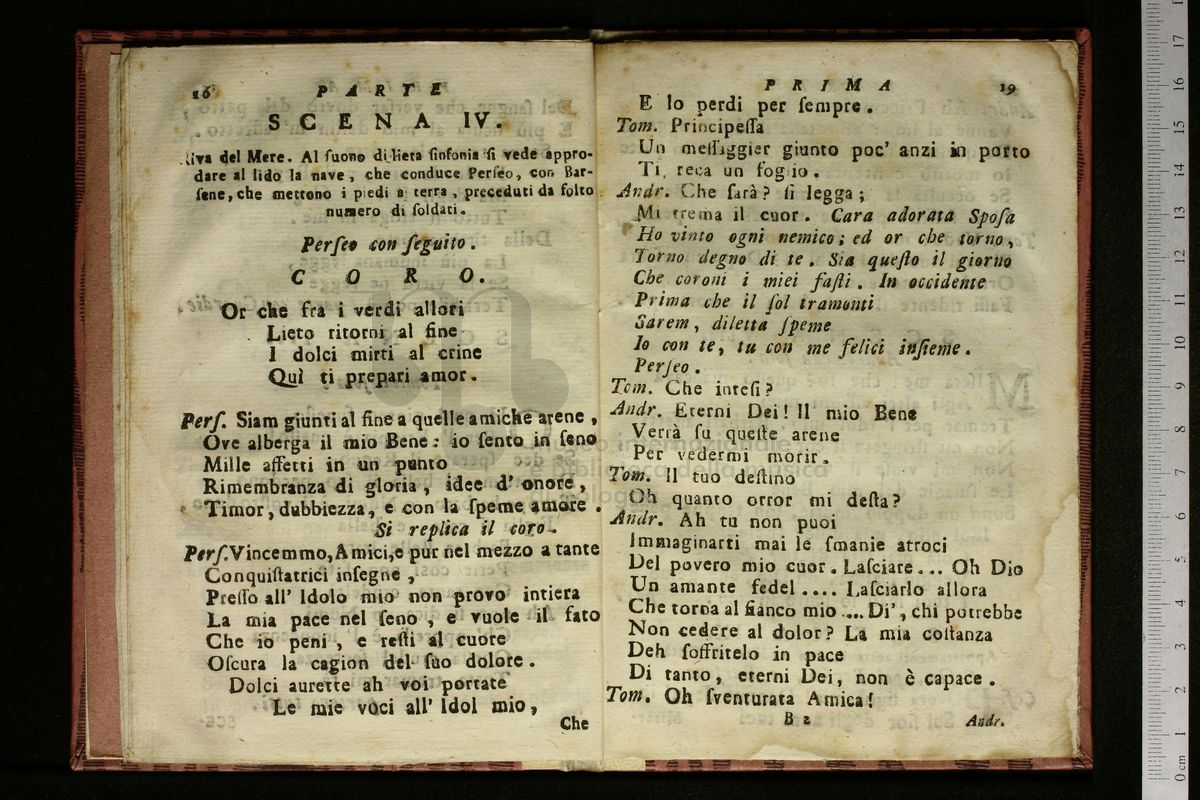 16 PARTE
SCENA IV.
Riva del Mere. Al ſuono di lieta ſinfonia ſi vede appro-
dare al lido la nave, che conduce Perſeo, con Bar-
ſene, che mettono i piedi a terra, preceduti da folto
numero di ſoldati.
Perſeo con ſeguito.
CORO.
Or che fra i verdi allori
Lieto ritorni al fine
I dolci mirti al crine
Quì ti prepari amor.
Perſ. Siam giunti al fine a quelle amiche arene,
Ove alberga il mio Bene: io ſento in ſeno
Mille affetti in un punto
Rimembranza di gloria, idee d' onore,
Timor, dubbiezza, e con la ſpeme amore.
Si replica il coro.
Perſ. Vincemmo, Amici, e pur nel mezzo a tante
Conquiſtatrici inſegne,
Preſſo all' Idolo mio non provo intiera
La mia pace nel ſeno, e vuole il fato
Che io peni, e reſti al cuore
Oſcura la cagion del ſuo dolore.
Dolci aurette ah voi portate
Le mie voci all' Idol mio,
Che
PRIMA 19
E lo perdi per ſempre.
Tom. Principeſſa
Un meſſaggier giunto poc' anzi in porto
Ti reca un foglio.
Andr. Che ſarà? ſi legga;
Mi trema il cuor. Cara adorata Spoſa
Ho vinto ogni nemico; ed or che torno,
Torno degno di te. Sia queſto il giorno
Che coroni i miei faſti. In occidente
Prima che il ſol tramonti
Sarem, diletta ſpeme
Io con te, tu con me felici inſieme.
Perſeo.
Tom. Che inteſi?
Andr. Eterni Dei! Il mio Bene
Verrà ſu queſte arene
Per vedermi morir.
Tom. Il tuo deſtino
Oh quanto orror mi deſta?
Andr. Ah tu non puoi
Immaginarti mai le ſmanie atroci
Del povero mio cuor. Laſciare... Oh Dio
Un amante fedel .... Laſciarlo allora
Che torna al fianco mio .... Di', chi potrebbe
Non cedere al dolor? La mia coſtanza
Deh ſoffritelo in pace
Di tanto, eterni Dei, non è capace.
Tom. Oh ſventurata Amica!
B 2 Andr.